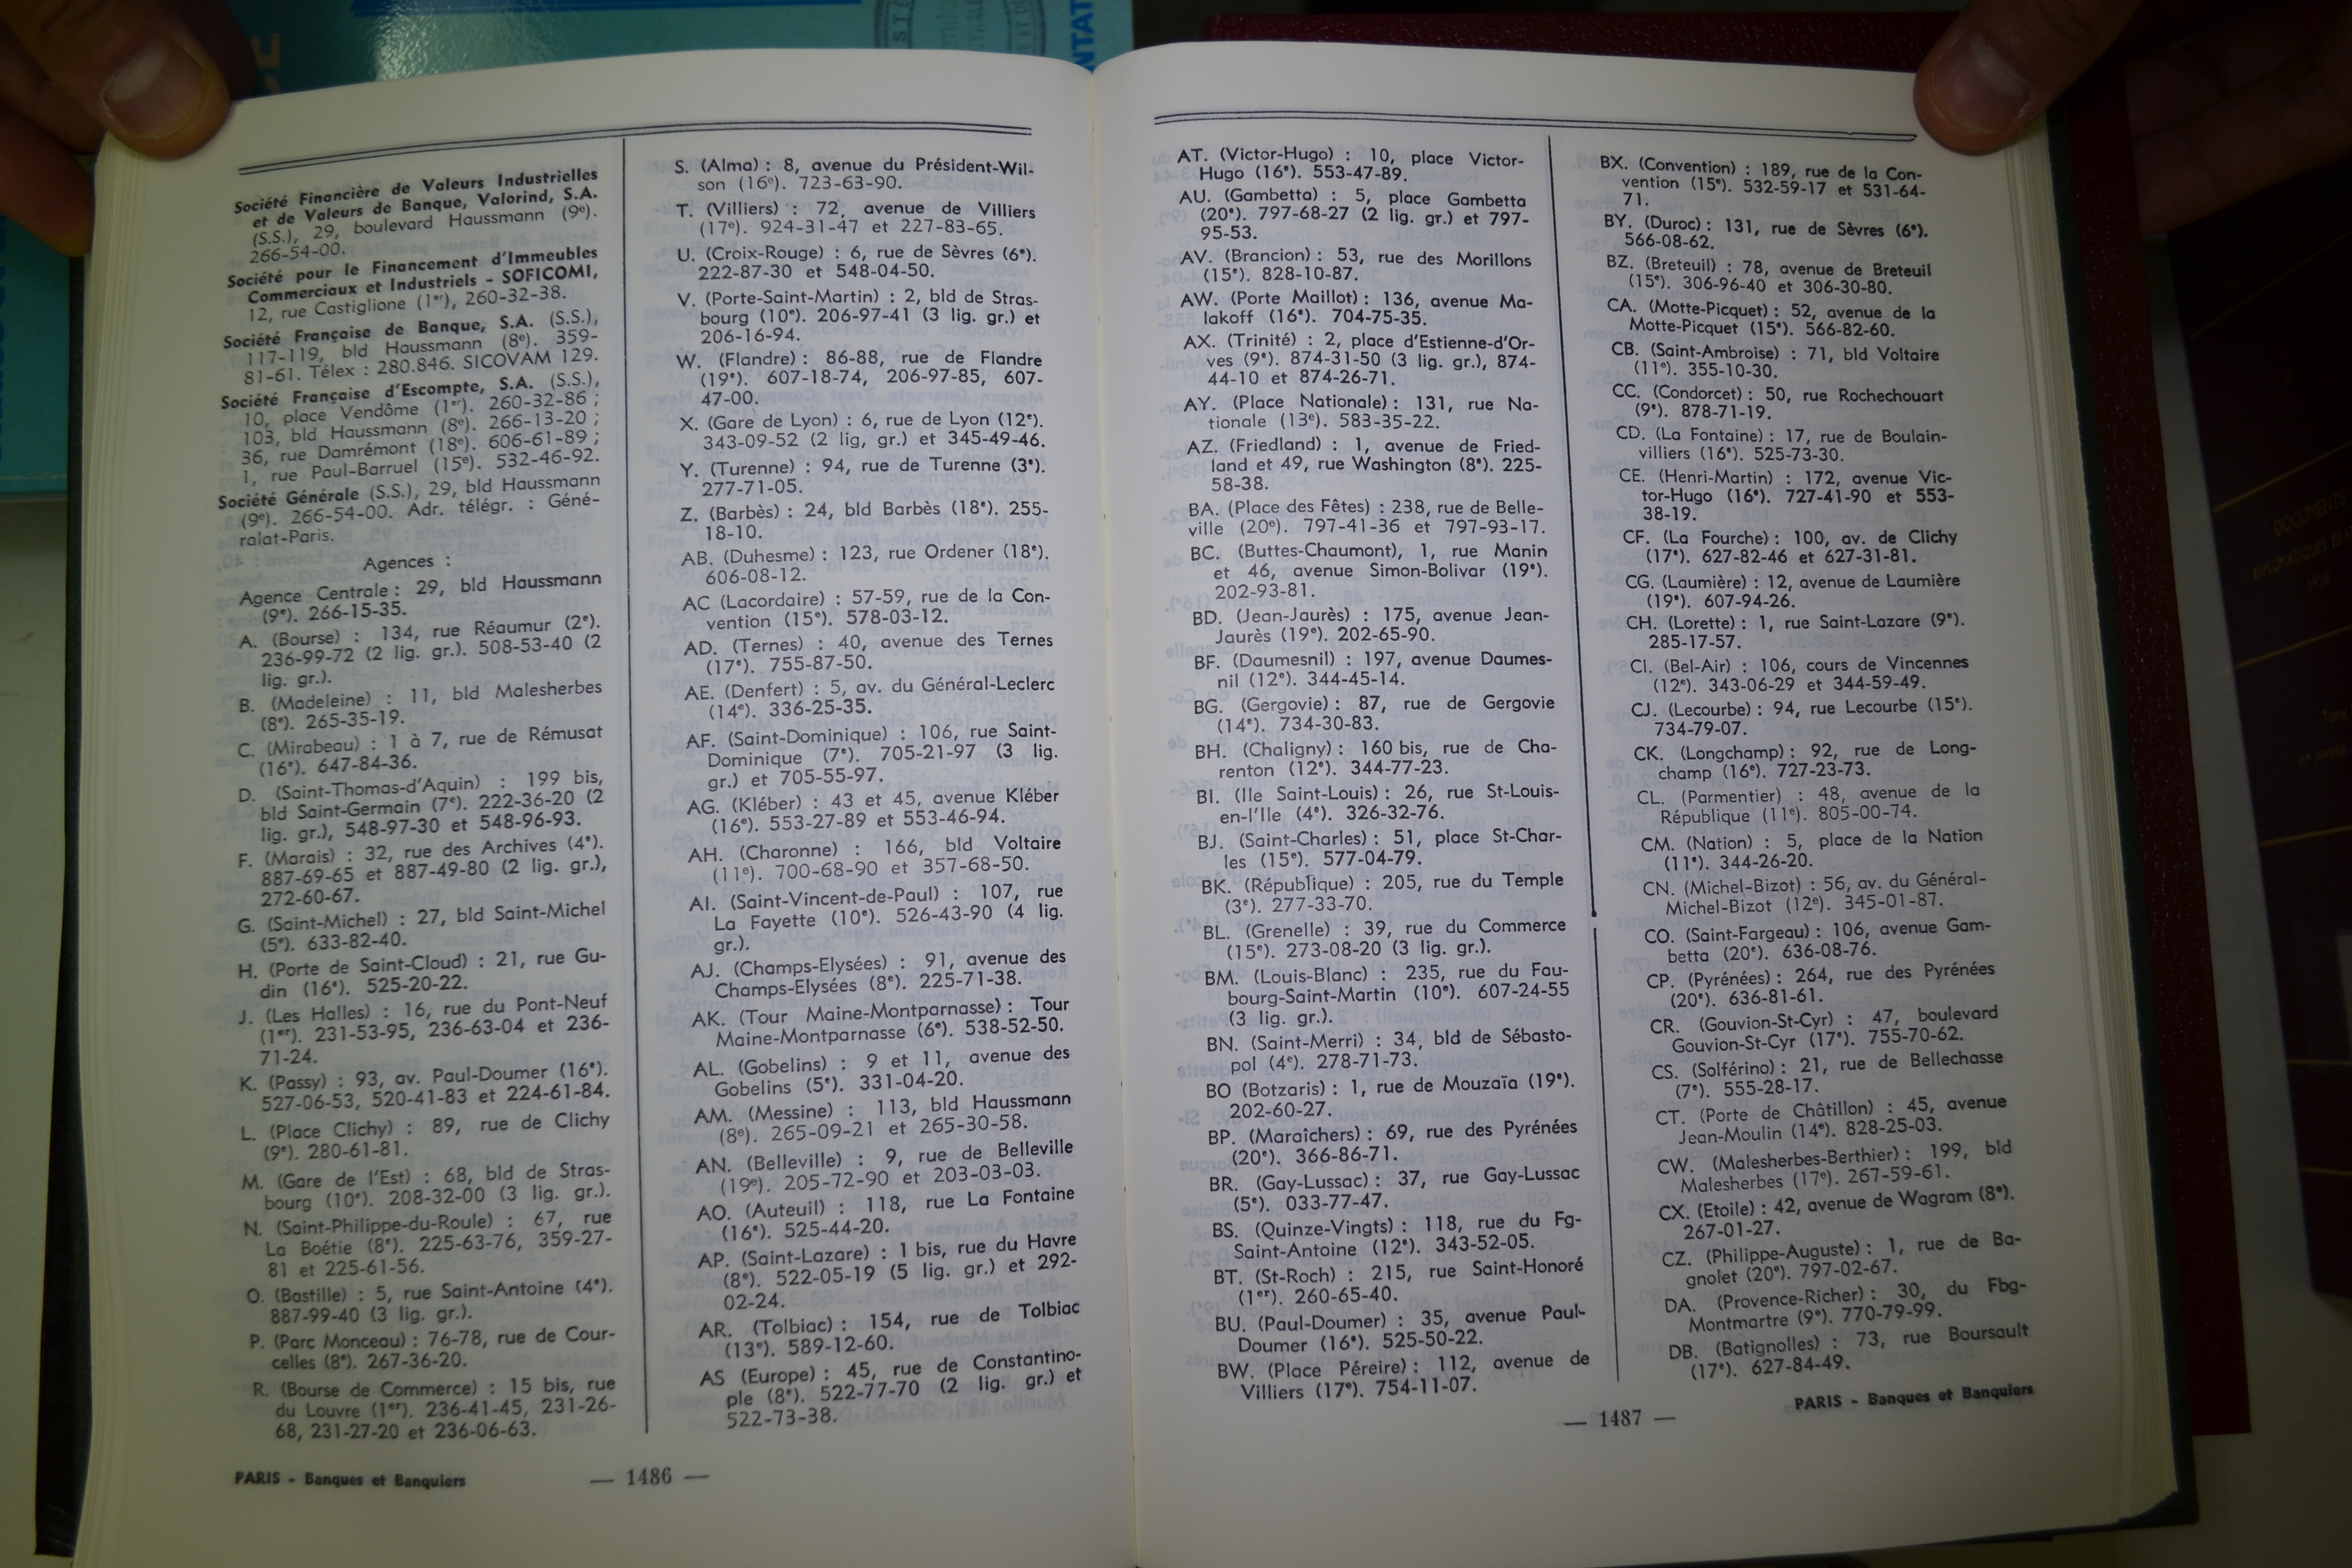 Société Financière de Valeurs Industrielles
et de Valeurs de Banque, Valorind, S.A.
(S.S.), 29, boulevard Haussmann (9e).
266-54-00.
Société pour le Financement d'Immeubles
Commerciaux et Industriels - SOFICOMI,
12, rue Castiglione (1er), 260-32-38.
Société Française de Banque, S.A. (S.S.),
117-119, bld Haussmann (8e). 359-
81-61. Télex : 280.846. SICOVAM 129.
Société Française d'Escompte, S.A. (S.S.),
10, place Vendôme (1er). 260-32-86 ;
103, bld Haussmann (8e). 266-13-20 ;
36, rue Damrémont (18e). 606-61-89 ;
1, rue Paul-Barruel (15e). 532-46-92.
Société Générale (S.S.), 29, bld Haussmann
(9e). 266-54-00. Adr. télégr. : Géné-
ralat-Paris.
Agences :
Agence Centrale : 29, bld Haussmann
(9e). 266-15-35.
A. (Bourse) : 134, rue Réaumur (2e).
236-99-72 (2 lig. gr.). 508-53-40 (2
lig. gr.).
B. (Madeleine) : 11, bld Malesherbes
(8e). 265-35-19.
C. (Mirabeau) : 1 à 7, rue de Rémusat
(16e). 647-84-36.
D. (Saint-Thomas-d'Aquin) : 199 bis,
bld Saint-Germain (7e). 222-36-20 (2
lig. gr.), 548-97-30 et 548-96-93.
F. (Marais) : 32, rue des Archives (4e).
887-69-65 et 887-49-80 (2 lig. gr.),
272-60-67.
G. (Saint-Michel) : 27, bld Saint-Michel
(5e). 633-82-40.
H. (Porte de Saint-Cloud) : 21, rue Gu-
din (16e). 525-20-22.
J. (Les Halles) : 16, rue du Pont-Neuf
(1er). 231-53-95, 236-63-04 et 236-
71-24.
K. (Passy) : 93, av. Paul-Doumer (16e).
527-06-53, 520-41-83 et 224-61-84.
L. (Place Clichy) : 89, rue de Clichy
(9e). 280-61-81.
M. (Gare de l'Est) : 68, bld de Stras-
bourg (10e). 208-32-00 (3 lig. gr.).
N. (Saint-Philippe-du-Roule) : 67, rue
La Boétie (8e). 225-63-76, 359-27-
81 et 225-61-56.
O. (Bastille) : 5, rue Saint-Antoine (4e).
887-99-40 (3 lig. gr.).
P. (Parc Monceau) : 76-78, rue de Cour-
celles (8e). 267-36-20.
R. (Bourse de Commerce) : 15 bis, rue
du Louvre (1er). 236-41-45, 231-26-
68, 231-27-20 et 236-06-63.
S. (Alma) : 8, avenue du Président-Wil-
son (16e). 723-63-90.
T. (Villiers) : 72, avenue de Villiers
(17e). 924-31-47 et 227-83-65.
U. (Croix-Rouge) : 6, rue de Sèvres (6e).
222-87-30 et 548-04-50.
V. (Porte-Saint-Martin) : 2, bld de Stras-
bourg (10e). 206-97-41 (3 lig. gr.) et
206-16-94.
W. (Flandre) : 86-88, rue de Flandre
(19e). 607-18-74, 206-97-85, 607-
47-00.
X. (Gare de Lyon) : 6, rue de Lyon (12e).
343-09-52 (2 lig, gr.) et 345-49-46.
Y. (Turenne) : 94, rue de Turenne (3e).
277-71-05.
Z. (Barbès) : 24, bld Barbès (18e). 255-
18-10.
AB. (Duhesme) : 123, rue Ordener (18e).
606-08-12.
AC (Lacordaire) : 57-59, rue de la Con-
vention (15e). 578-03-12.
AD. (Ternes) : 40, avenue des Ternes
(17e). 755-87-50.
AE. (Denfert) : 5, av. du Général-Leclerc
(14e). 336-25-35.
AF. (Saint-Dominique) : 106, rue Saint-
Dominique (7e). 705-21-97 (3 lig.
gr.) et 705-55-97.
AG. (Kléber) : 43 et 45, avenue Kléber
(16e). 553-27-89 et 553-46-94.
AH. (Charonne) : 166, bld Voltaire
(11e). 700-68-90 et 357-68-50.
AI. (Saint-Vincent-de-Paul) : 107, rue
La Fayette (10e). 526-43-90 (4 lig.
gr.).
AJ. (Champs-Elysées) : 91, avenue des
Champs-Elysées (8e). 225-71-38.
AK. (Tour Maine-Montparnasse) : Tour
Maine-Montparnasse (6e). 538-52-50.
AL. (Gobelins) : 9 et 11, avenue des
Gobelins (5e). 331-04-20.
AM. (Messine) : 113, bld Haussmann
(8e). 265-09-21 et 265-30-58.
AN. (Belleville) : 9, rue de Belleville
(19e). 205-72-90 et 203-03-03.
AO. (Auteuil) : 118, rue La Fontaine
(16e). 525-44-20.
AP. (Saint-Lazare) : 1 bis, rue du Havre
(8e). 522-05-19 (5 lig. gr.) et 292-
02-24.
AR. (Tolbiac) : 154, rue de Tolbiac
(13e). 589-12-60.
AS (Europe) : 45, rue de Constantino-
ple (8e). 522-77-70 (2 lig. gr.) et
522-73-38.
PARIS - Banques et Banquiers
— 1486 —
AT. (Victor-Hugo) : 10, place Victor-
Hugo (16e). 553-47-89.
AU. (Gambetta) : 5, place Gambetta
(20e). 797-68-27 (2 lig. gr.) et 797-
95-53.
AV. (Brancion) : 53, rue des Morillons
(15e). 828-10-87.
AW. (Porte Maillot) : 136, avenue Ma-
lakoff (16e). 704-75-35.
AX. (Trinité) : 2, place d'Estienne-d'Or-
ves (9e). 874-31-50 (3 lig. gr.), 874-
44-10 et 874-26-71.
AY. (Place Nationale) : 131, rue Na-
tionale (13e). 583-35-22.
AZ. (Friedland) : 1, avenue de Fried-
land et 49, rue Washington (8e). 225-
58-38.
BA. (Place des Fêtes) : 238, rue de Belle-
ville (20e). 797-41-36 et 797-93-17.
BC. (Buttes-Chaumont), 1, rue Manin
et 46, avenue Simon-Bolivar (19e).
202-93-81.
BD. (Jean-Jaurès) : 175, avenue Jean-
Jaurès (19e). 202-65-90.
BF. (Daumesnil) : 197, avenue Daumes-
nil (12e). 344-45-14.
BG. (Gergovie) : 87, rue de Gergovie
(14e). 734-30-83.
BH. (Chaligny) : 160 bis, rue de Cha-
renton (12e). 344-77-23.
BI. (Ile Saint-Louis) : 26, rue St-Louis-
en-l'Ile (4e). 326-32-76.
BJ. (Saint-Charles) : 51, place St-Char-
les (15e). 577-04-79.
BK. (République) : 205, rue du Temple
(3e). 277-33-70.
BL. (Grenelle) : 39, rue du Commerce
(15e). 273-08-20 (3 lig. gr.).
BM. (Louis-Blanc) : 235, rue du Fau-
bourg-Saint-Martin (10e). 607-24-55
(3 lig. gr.).
BN. (Saint-Merri) : 34, bld de Sébasto-
pol (4e). 278-71-73.
BO (Botzaris) : 1, rue de Mouzaïa (19e).
202-60-27.
BP. (Maraîchers) : 69, rue des Pyrénées
(20e). 366-86-71.
BR. (Gay-Lussac) : 37, rue Gay-Lussac
(5e). 033-77-47.
BS. (Quinze-Vingts) : 118, rue du Fg-
Saint-Antoine (12e). 343-52-05.
BT. (St-Roch) : 215, rue Saint-Honoré
(1er). 260-65-40.
BU. (Paul-Doumer) : 35, avenue Paul-
Doumer (16e). 525-50-22.
BW. (Place Péreire) : 112, avenue de
Villiers (17e). 754-11-07.
BX. (Convention) : 189, rue de la Con-
vention (15e). 532-59-17 et 531-64-
71.
BY. (Duroc) : 131, rue de Sèvres (6e).
566-08-62.
BZ. (Breteuil) : 78, avenue de Breteuil
(15e). 306-96-40 et 306-30-80.
CA. (Motte-Picquet) : 52, avenue de la
Motte-Picquet (15e). 566-82-60.
CB. (Saint-Ambroise) : 71, bld Voltaire
(11e). 355-10-30.
CC. (Condorcet) : 50, rue Rochechouart
(9e). 878-71-19.
CD. (La Fontaine) : 17, rue de Boulain-
villiers (16e). 525-73-30.
CE. (Henri-Martin) : 172, avenue Vic-
tor-Hugo (16e). 727-41-90 et 553-
38-19.
CF. (La Fourche) : 100, av. de Clichy
(17e). 627-82-46 et 627-31-81.
CG. (Laumière) : 12, avenue de Laumière
(19e). 607-94-26.
CH. (Lorette) : 1, rue Saint-Lazare (9e).
285-17-57.
CI. (Bel-Air) : 106, cours de Vincennes
(12e). 343-06-29 et 344-59-49.
CJ. (Lecourbe) : 94, rue Lecourbe (15e).
734-79-07.
CK. (Longchamp) : 92, rue de Long-
champ (16e). 727-23-73.
CL. (Parmentier) : 48, avenue de la
République (11e). 805-00-74.
CM. (Nation) : 5, place de la Nation
(11e). 344-26-20.
CN. (Michel-Bizot) : 56, av. du Général-
Michel-Bizot (12e). 345-01-87.
CO. (Saint-Fargeau) : 106, avenue Gam-
betta (20e). 636-08-76.
CP. (Pyrénées) : 264, rue des Pyrénées
(20e). 636-81-61.
CR. (Gouvion-St-Cyr) : 47, boulevard
Gouvion-St-Cyr (17e). 755-70-62.
CS. (Solférino) : 21, rue de Bellechasse
(7e). 555-28-17.
CT. (Porte de Châtillon) : 45, avenue
Jean-Moulin (14e). 828-25-03.
CW. (Malesherbes-Berthier) : 199, bld
Malesherbes (17e). 267-59-61.
CX. (Etoile) : 42, avenue de Wagram (8e).
267-01-27.
CZ. (Philippe-Auguste) : 1, rue de Ba-
gnolet (20e). 797-02-67.
DA. (Provence-Richer) : 30, du Fbg-
Montmartre (9e). 770-79-99.
DB. (Batignolles) : 73, rue Boursault
(17e). 627-84-49.
PARIS - Banques et Banquiers
— 1487 —